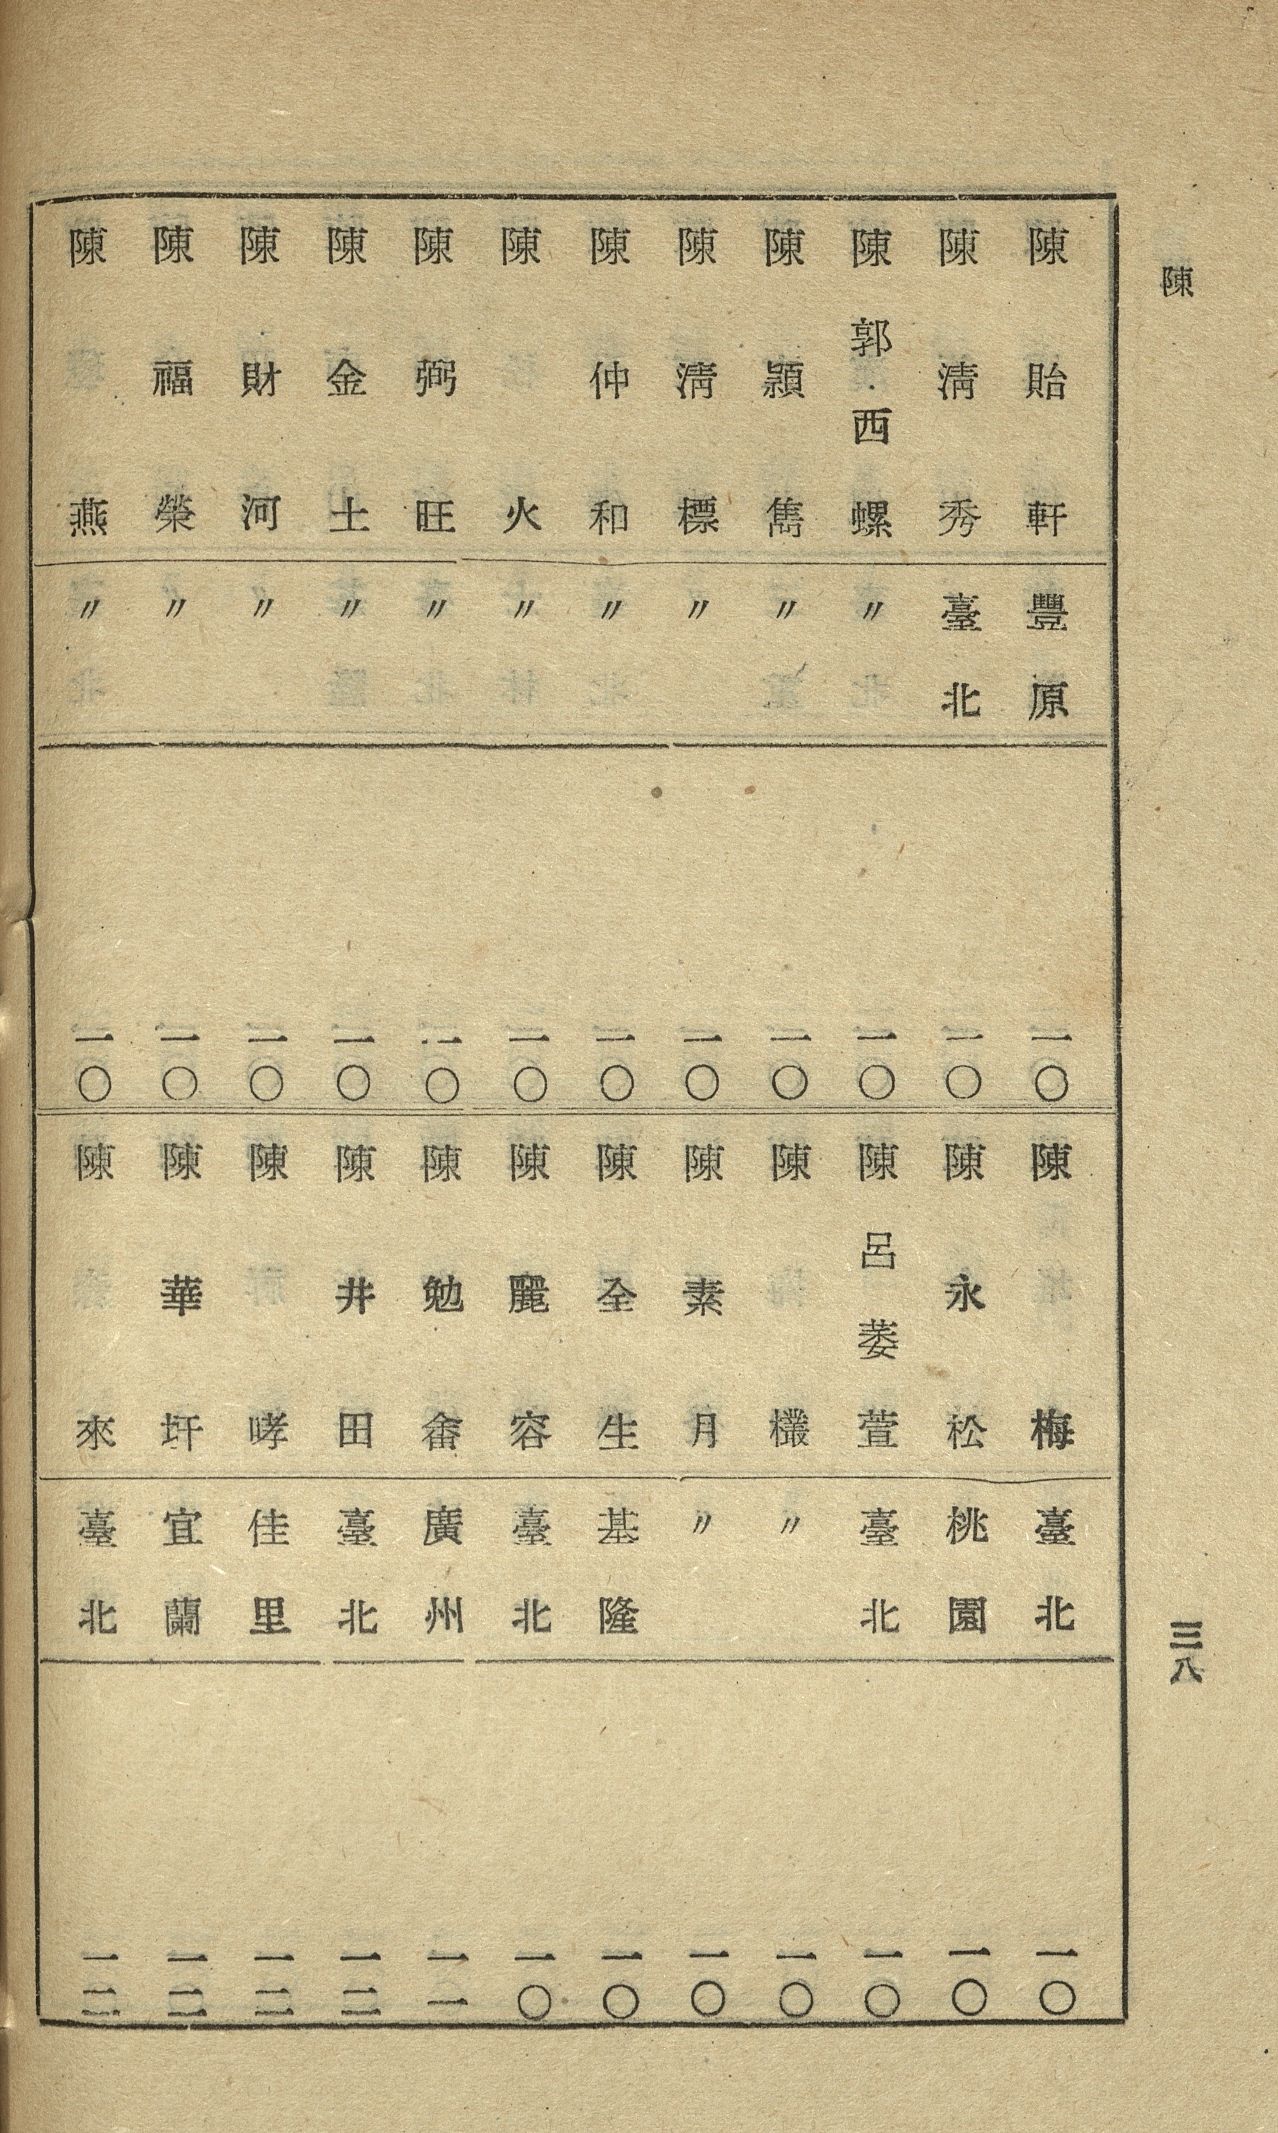 陳
三八
陳貽軒 豐原 一〇
陳淸秀 臺北 一〇
陳郭西螺 〃 一〇
陳頴雋 〃 一〇
陳淸標 〃 一〇
陳仲和 〃 一〇
陳火 〃 一〇
陳弼旺 〃 一〇
陳金土 〃 一〇
陳財河 〃 一〇
陳福榮 〃 一〇
陳燕 〃 一〇
陳梅 臺北 一〇
陳永松 桃園 一〇
陳呂萎萱 臺北 一〇
陳欉 〃 一〇
陳素月 〃 一〇
陳全生 基隆 一〇
陳麗容 臺北 一〇
陳勉畬 廣州 一一
陳井田 臺北 一二
陳哮 佳里 一二
陳華玕 宜蘭 一二
陳來 臺北 一二